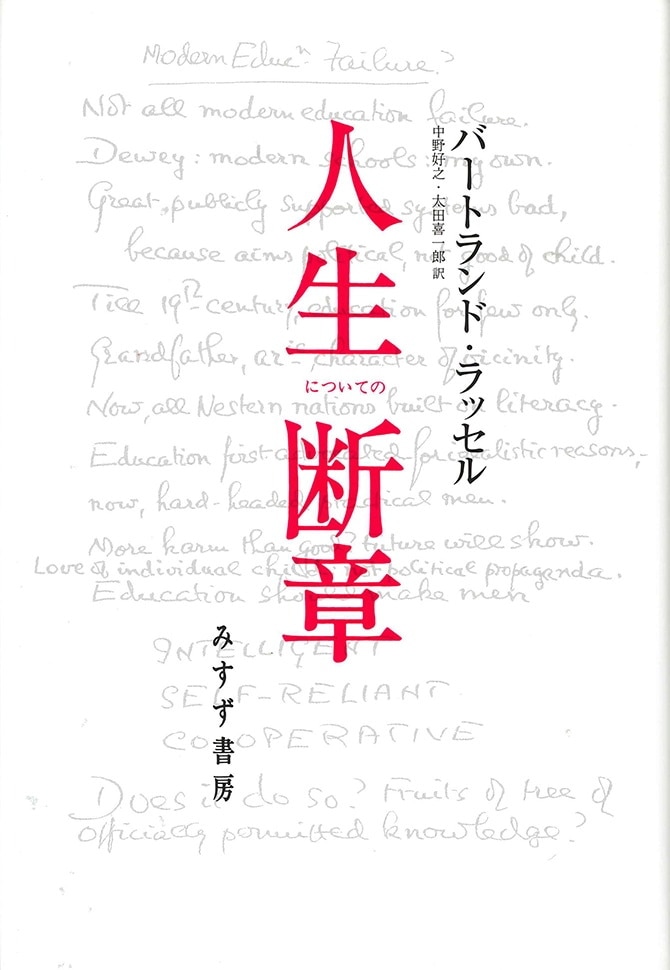 バートランド・ラッセル
中野好之・太田喜一郎 訳
人生
についての
断章
みすず書房
Modern Educn. Failure?
Not all modern education failure.
Dewey: modern schools: my own.
Great, publicly supported systems bad,
because aims political, not good of child.
Till 19th century, education for few only.
Grandfather, character of vicinity.
Now, all Western nations built on literacy.
Education first advocated for idealistic reasons,
now, hard-headed practical men.
More harm than good? Future will show.
Love of individual child, not political propaganda.
Education should make men
INTELLIGENT
SELF-RELIANT
CO-OPERATIVE
Does it do so? Fruits of tree of
officially permitted knowledge?